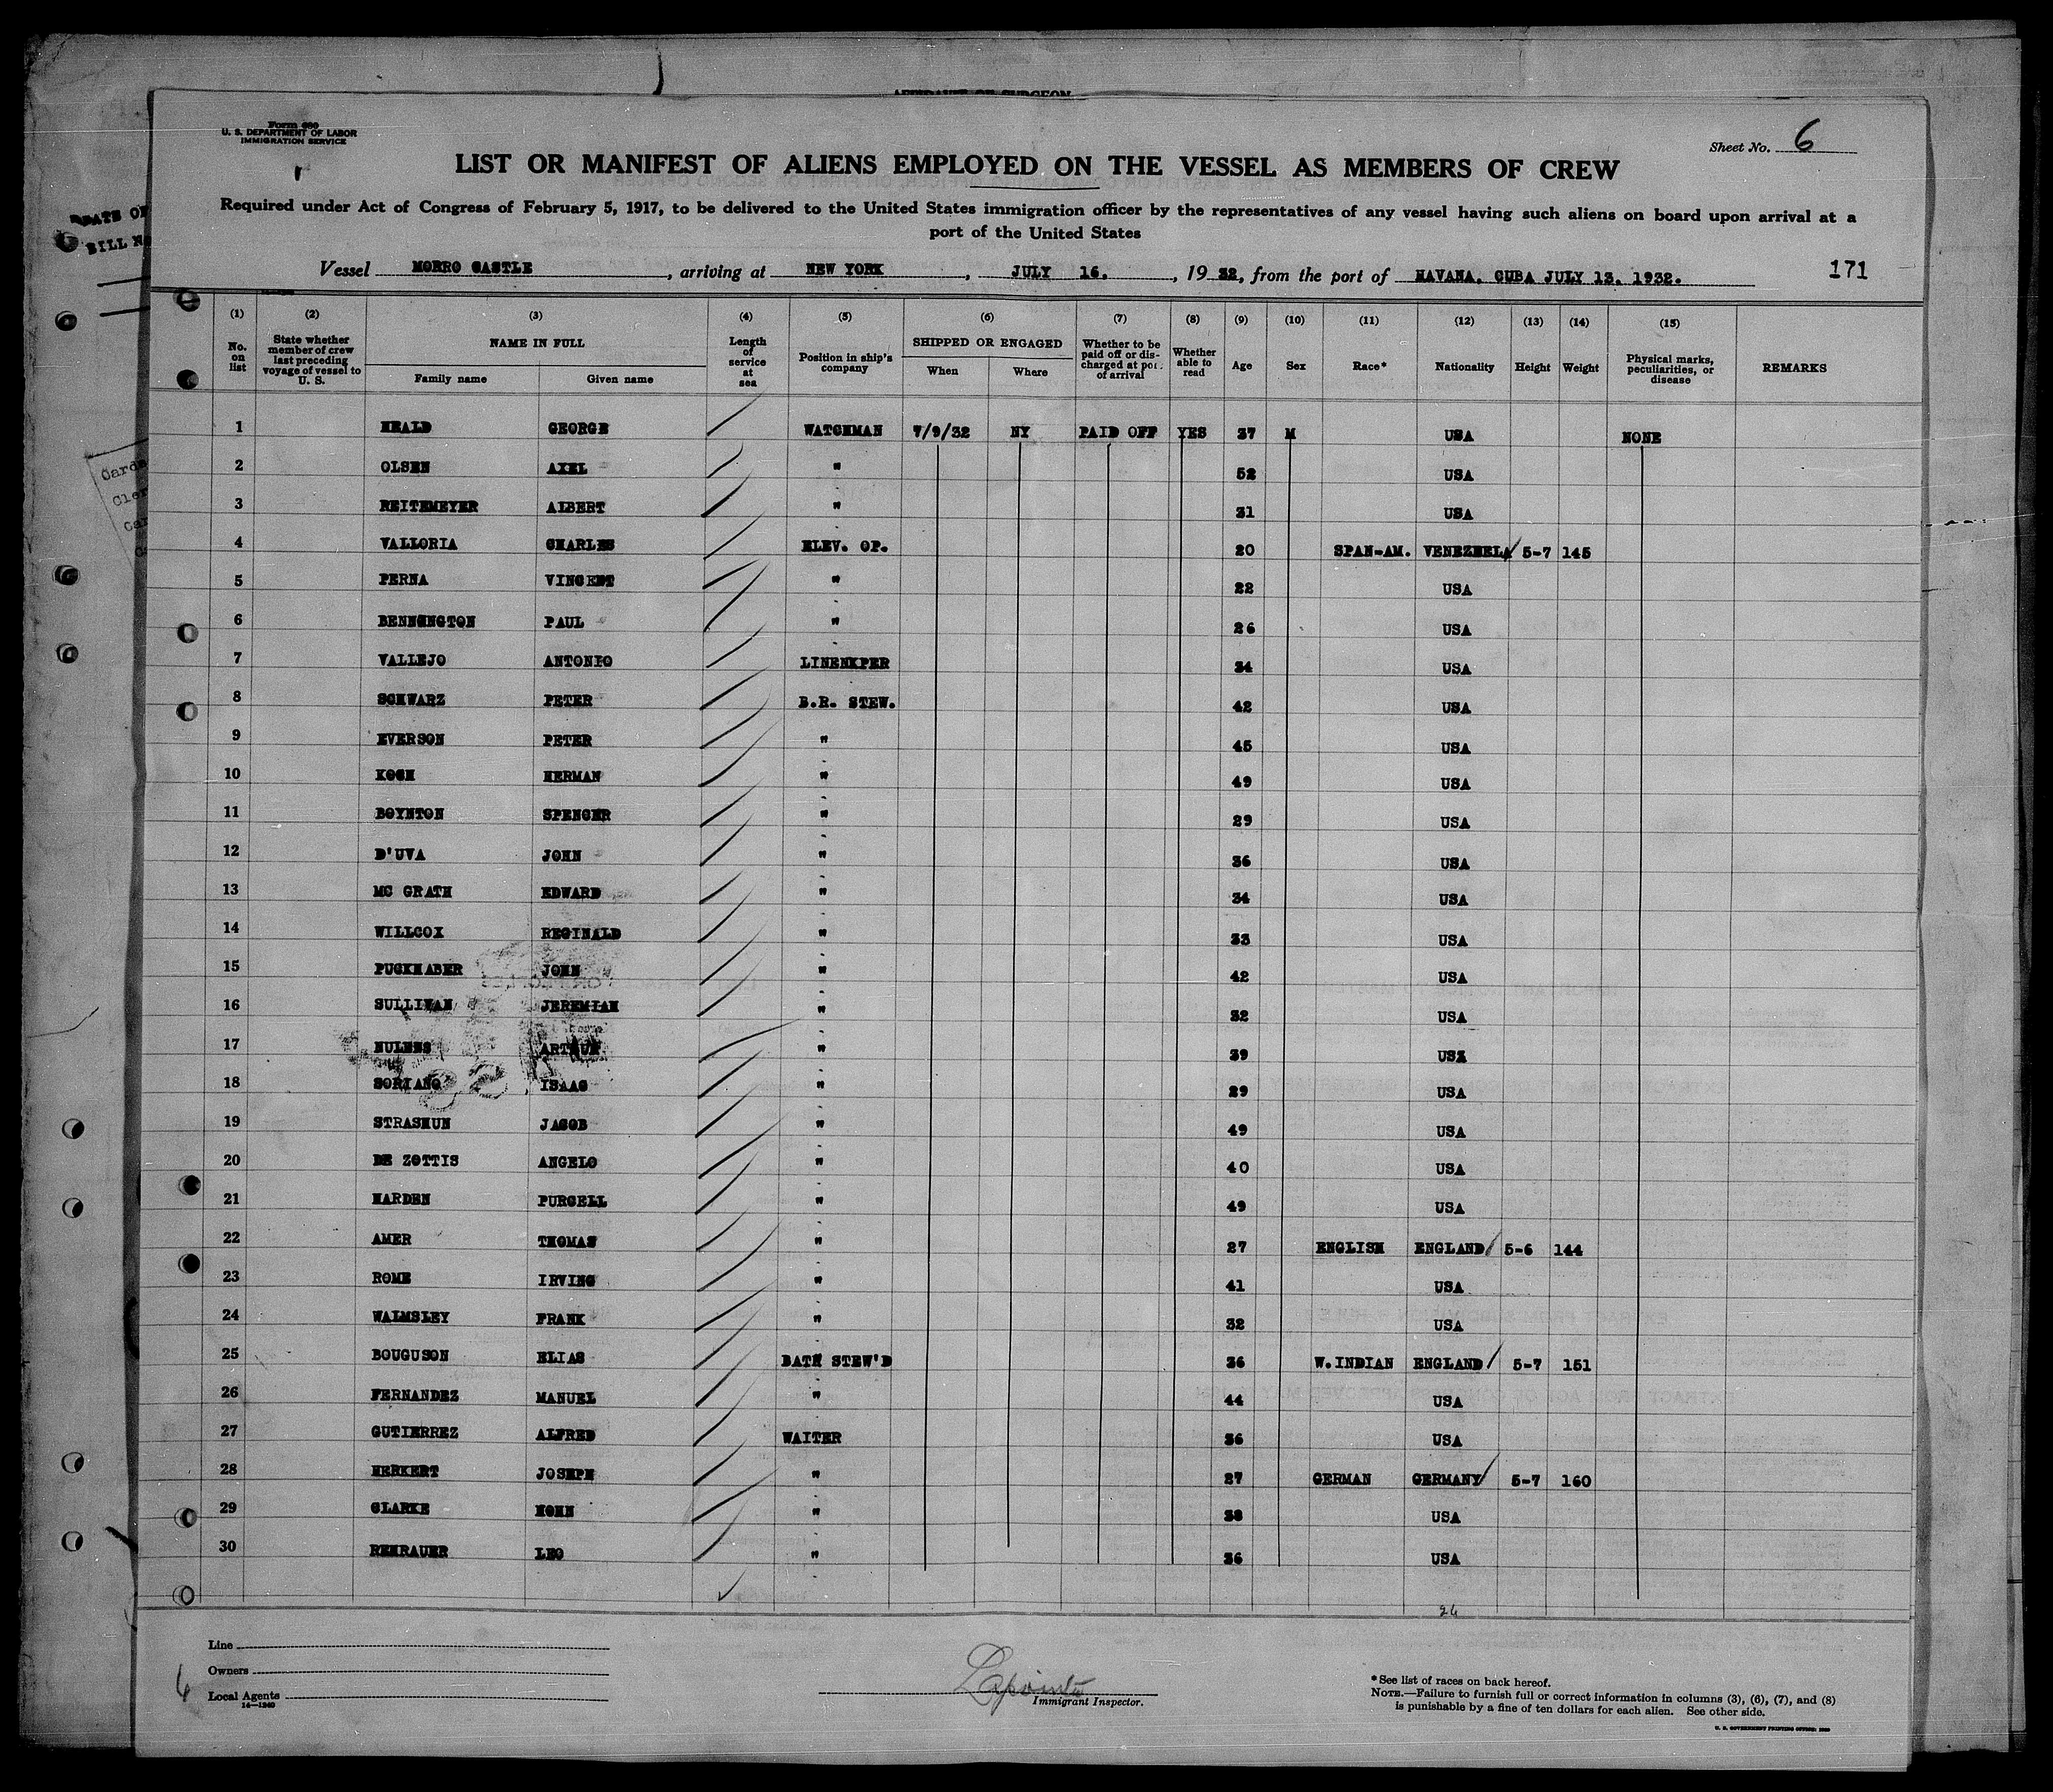 AFFIDAVIT OF SURGEON
Form 680
U. S. DEPARTMENT OF LABOR
IMMIGRATION SERVICE
Sheet No. 6
LIST OR MANIFEST OF ALIENS EMPLOYED ON THE VESSEL AS MEMBERS OF CREW
Required under Act of Congress of February 5, 1917, to be delivered to the United States immigration officer by the representatives of any vessel having such aliens on board upon arrival at a
port of the United States
Vessel MORRO CASTLE, arriving at NEW YORK, JULY 16., 1932, from the port of HAVANA, CUBA JULY 13, 1932. 171
(1) (2) (3) (4) (5) (6) (7) (8) (9) (10) (11) (12) (13) (14) (15)
No. on list State whether member of crew last preceding voyage of vessel to U. S. NAME IN FULL Family name Given name Length of service at sea Position in ship's company SHIPPED OR ENGAGED When Where Whether to be paid off or discharged at port of arrival Whether able to read Age Sex Race* Nationality Height Weight Physical marks, peculiarities, or disease REMARKS
1 HEALD GEORGE WATCHMAN 7/9/32 NY PAID OFF YES 37 M USA NONE
2 OLSEN AXEL " 52 USA
3 REITEMEYER ALBERT " 31 USA
4 VALLORIA CHARLES ELEV. OP. 20 SPAN-AM. VENEZUELA 5-7 145
5 PERNA VINCENT " 22 USA
6 BENNINGTON PAUL " 26 USA
7 VALLEJO ANTONIO LINENKPER 34 USA
8 SCHWARZ PETER B.R. STEW. 42 USA
9 EVERSON PETER " 45 USA
10 KOCH HERMAN " 49 USA
11 BOYNTON SPENCER " 29 USA
12 D'UVA JOHN " 36 USA
13 MC GRATH EDWARD " 34 USA
14 WILLCOX REGINALD " 33 USA
15 PUCKHABER JOHN " 42 USA
16 SULLIVAN JEREMIAH " 32 USA
17 HULENS ARTHUR " 39 USA
18 SORIANO ISAAC " 29 USA
19 STRASHUN JACOB " 49 USA
20 DE ZOTTIS ANGELO " 40 USA
21 HARDEN PURCELL " 49 USA
22 AMER THOMAS " 27 ENGLISH ENGLAND 5-6 144
23 ROME IRVING " 41 USA
24 WALMSLEY FRANK " 32 USA
25 BOUGUSON ELIAS BATH STEW'D 36 W.INDIAN ENGLAND 5-7 151
26 FERNANDEZ MANUEL " 44 USA
27 GUTIERREZ ALFRED WAITER 36 USA
28 HERKERT JOSEPH " 27 GERMAN GERMANY 5-7 160
29 CLARKE HOHN " 38 USA
30 REHRAUER LEO " 36 USA
26
Line
Owners
Local Agents
14—1240
6
Lapointe
Immigrant Inspector.
*See list of races on back hereof.
NOTE.—Failure to furnish full or correct information in columns (3), (6), (7), and (8)
is punishable by a fine of ten dollars for each alien. See other side.